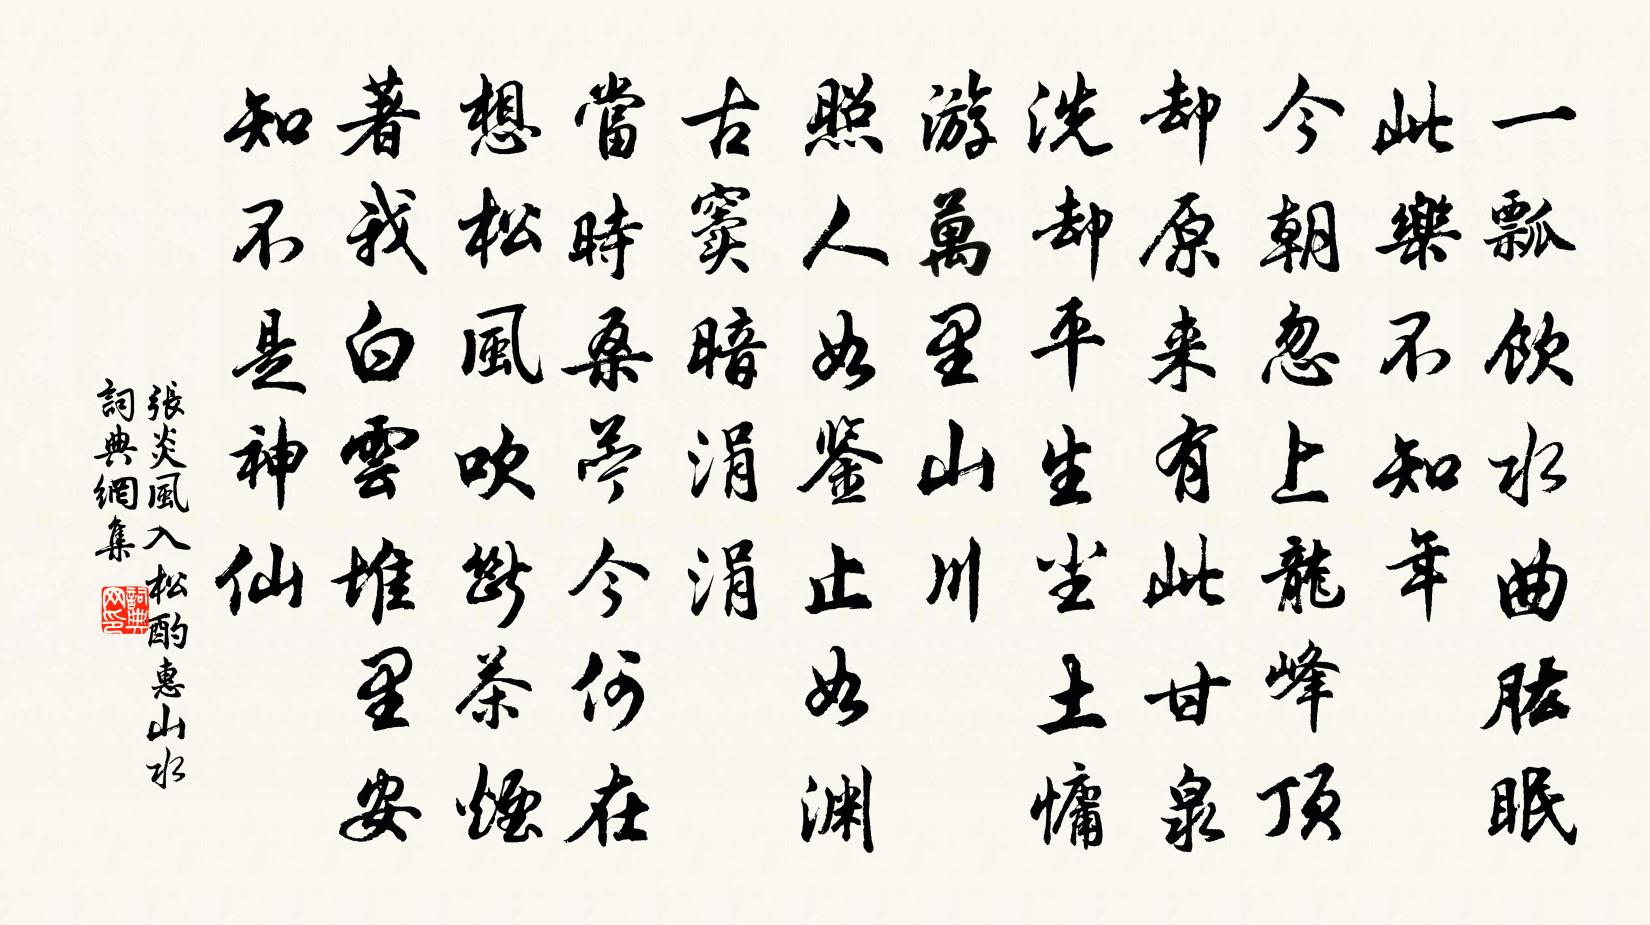 一瓢飲水曲肱眠
此樂不知年
今朝忽上龍峰頂
却原来有此甘泉
洗却平生尘土慵
游萬里山川
照人如鉴止如渊
古窦暗涓涓
當時桑苧今何在
想松風吹斷茶煙
著我白雲堆里安
知不是神仙
張炎風入松酌惠山水
詞典網集
詞典网印